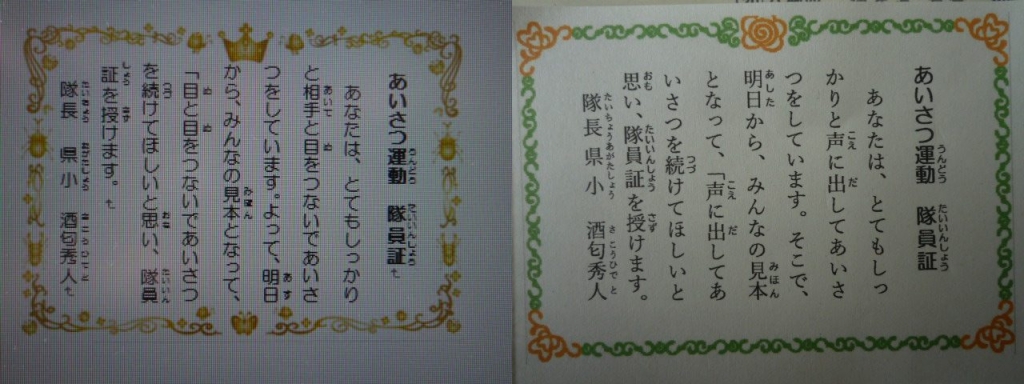 あいさつ運動　隊員証
あなたは、とてもしっかり
と相手と目をつないであいさ
つをしています。よって、明日
から、みんなの見本となって、
「目と目をつないであいさつ
を続けてほしいと思い、隊員
証を授けます。
隊長　県小　酒匂秀人
あいさつ運動　隊員証
あなたは、とてもしっ
かりと声に出してあいさ
つをしています。そこで、
明日から、みんなの見本
となって、「声に出してあ
いさつを続けてほしいと
思い、隊員証を授けます。
隊長県小　酒匂秀人